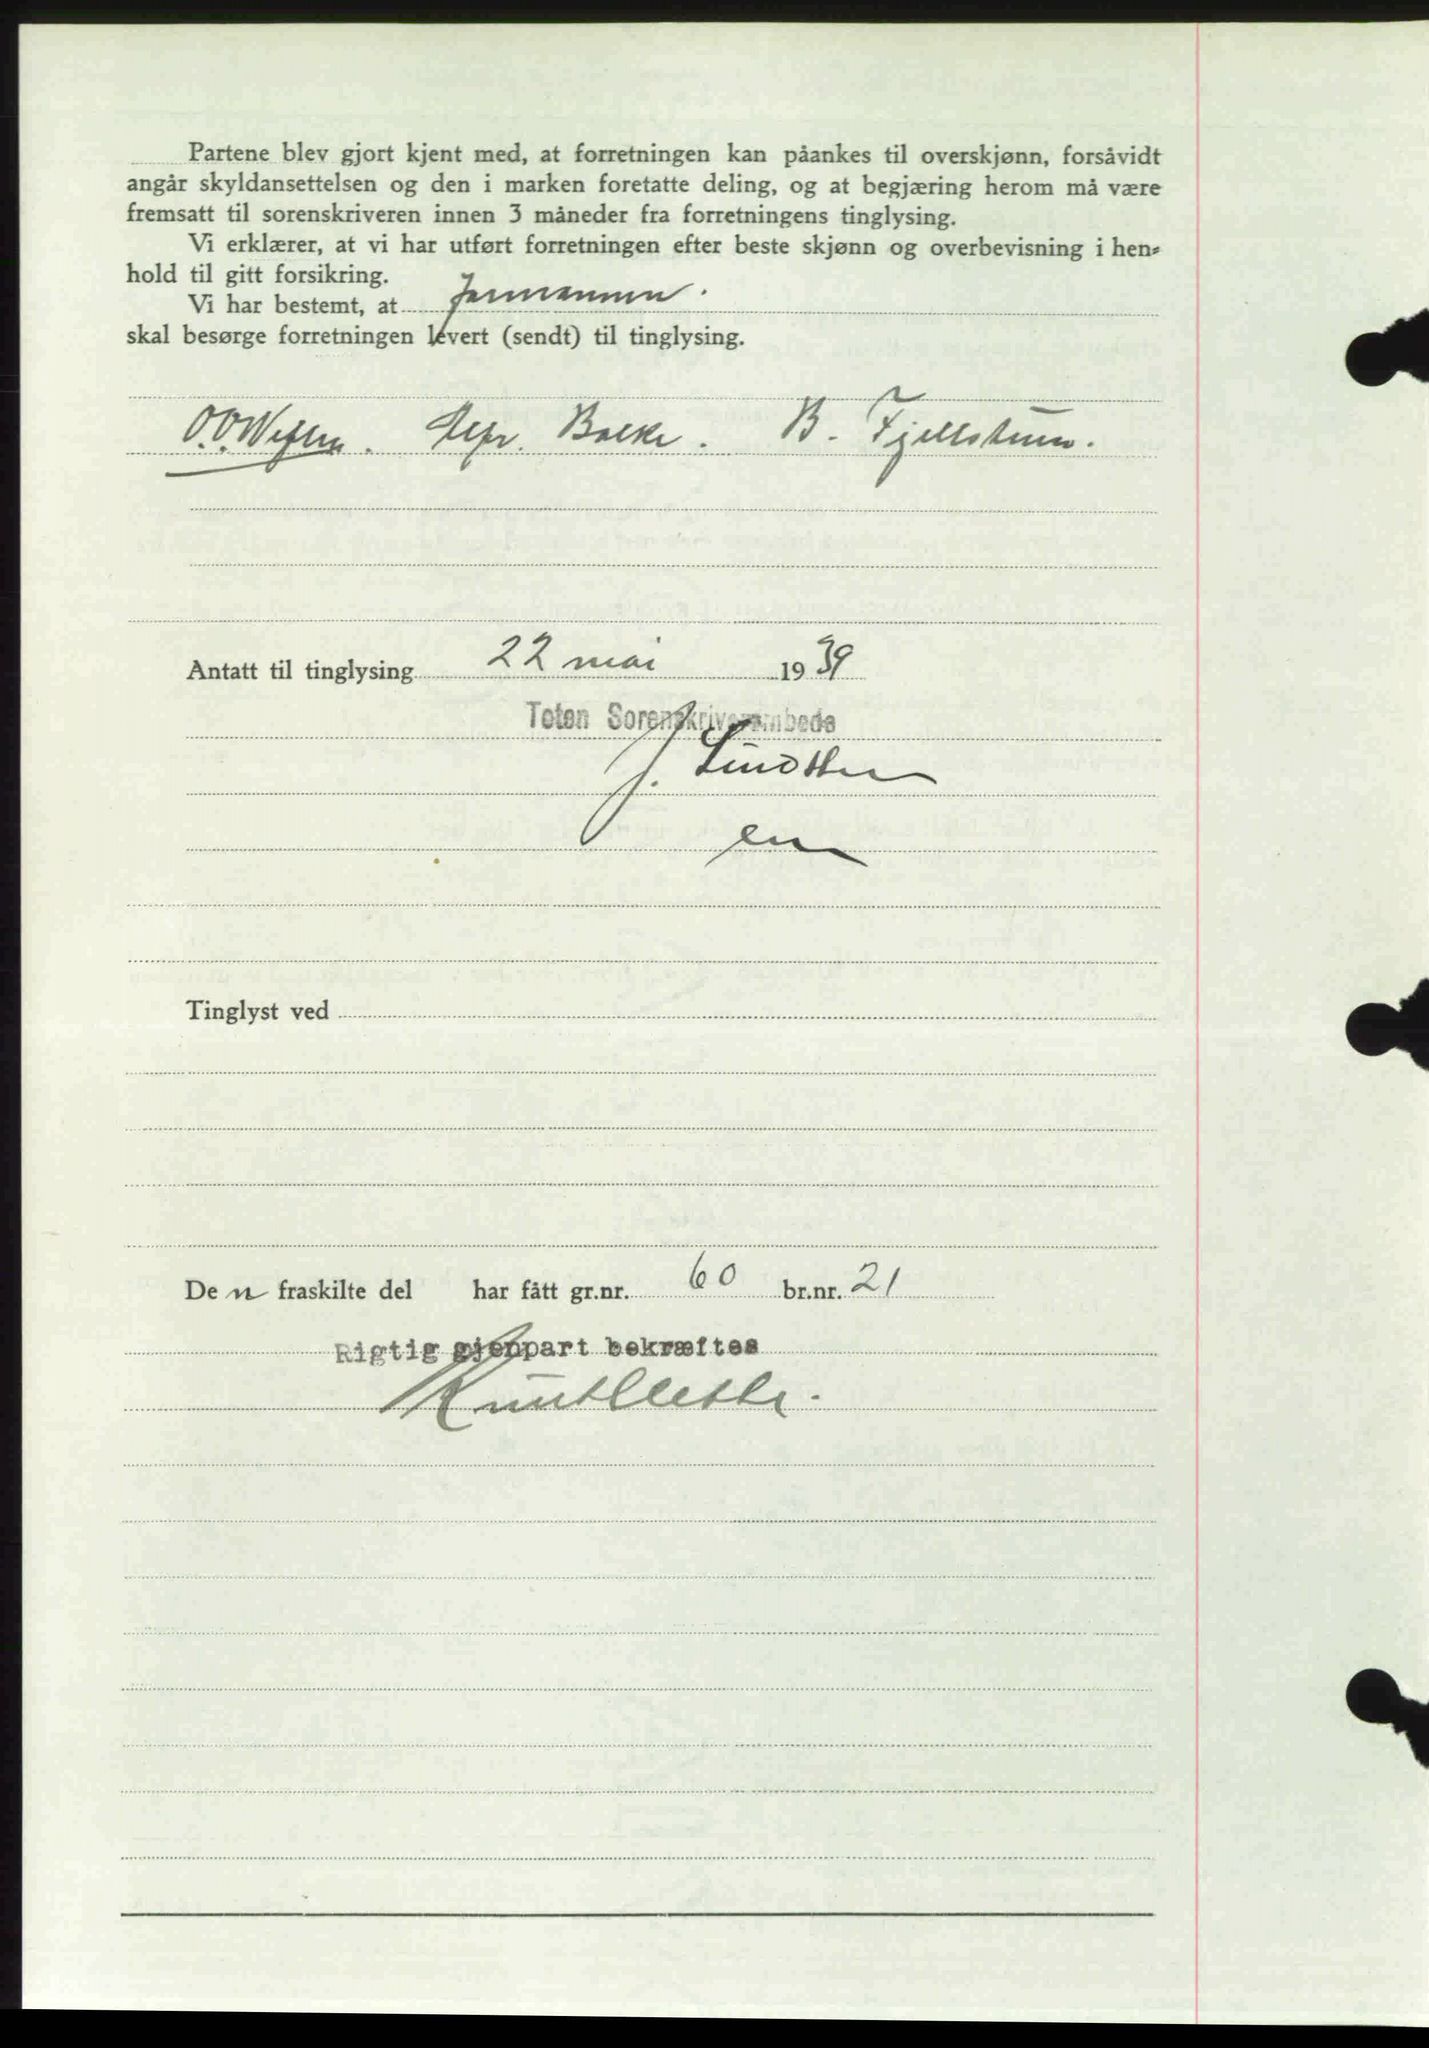 Partene blev gjort kjent med, at forretningen kan påankes til overskjønn, forsåvidt
angår skyldansettelsen og den i marken foretatte deling, og at begjæring herom må være
fremsatt til sorenskriveren innen 3 måneder fra forretningens tinglysing.
Vi erklærer, at vi har utført forretningen efter beste skjønn og overbevisning i hen-
hold til gitt forsikring.
Vi har bestemt, at formannen.
skal besørge forretningen levert (sendt) til tinglysing.
O.O. Balke. B. Fjellstuen.
Antatt til tinglysing 22 mai 1939
Toten Sorenskriverembede
J.
Tinglyst ved
De n fraskilte del har fått gr.nr. 60 br.nr. 21
Rigtig gjenpart bekræftes